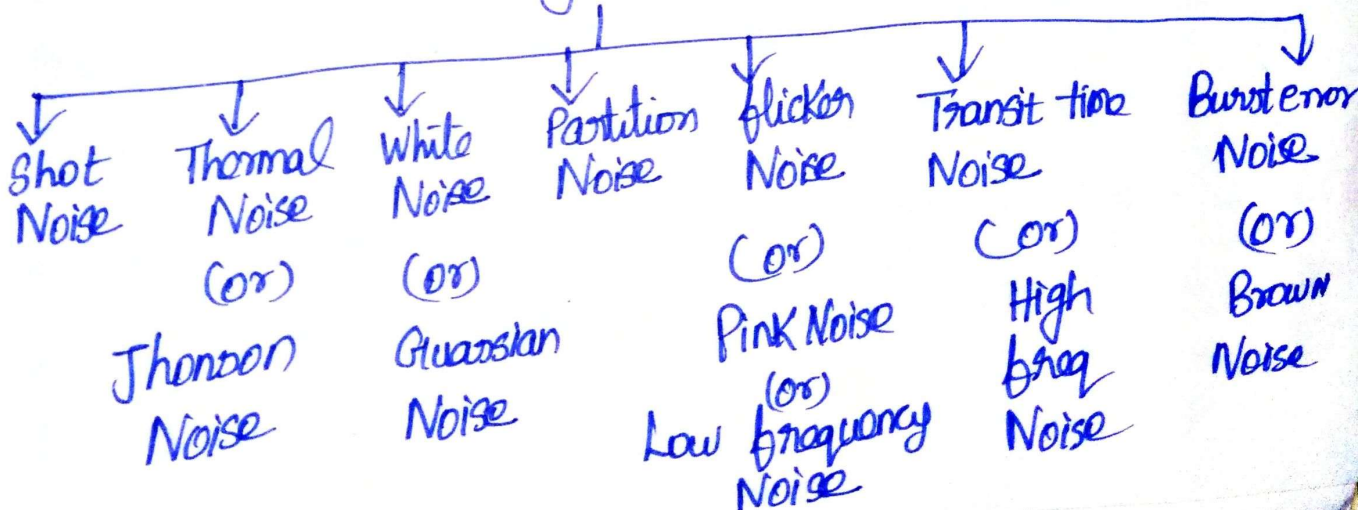 Shot
Noise
Thermal
Noise
(or)
Jhonson
Noise
White
Noise
(or)
Guassian
Noise
Partition
Noise
flicker
Noise
(or)
Pink Noise
(or)
Low frequency
Noise
Transit time
Noise
(or)
High
freq
Noise
Burst error
Noise
(or)
Brown
Noise